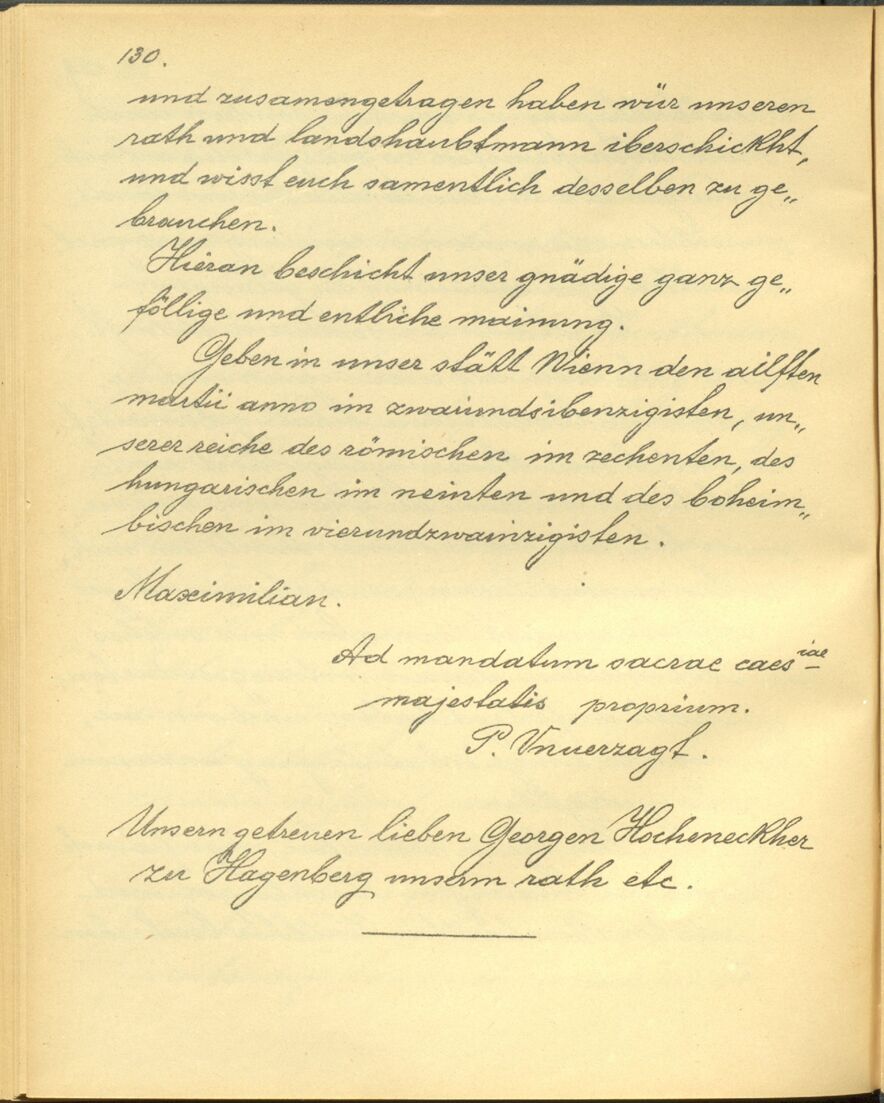 130.
und zusamengetragen haben wür unseren
rath und landshaubtmann iberschickht,
und wisst euch samentlich desselben zu ge„
brauchen.
Hieran beschicht unser gnädige ganz ge„
föllige und entliche mainung.
Geben in unser stätt Wienn den ailften
martii anno im zwaiundsibenzigisten, un„
serer reiche des römischen im zechenten, des
hungarischen im neinten und des boheim„
bischen im vierundzwainzigisten.
Maximilian.
Ad mandatum sacrae caesiae
majestatis proprium.
P. Vnuerzagt.
Unsern getreuen lieben Georgen Hocheneckher
zu Hagenberg unserm rath etc.